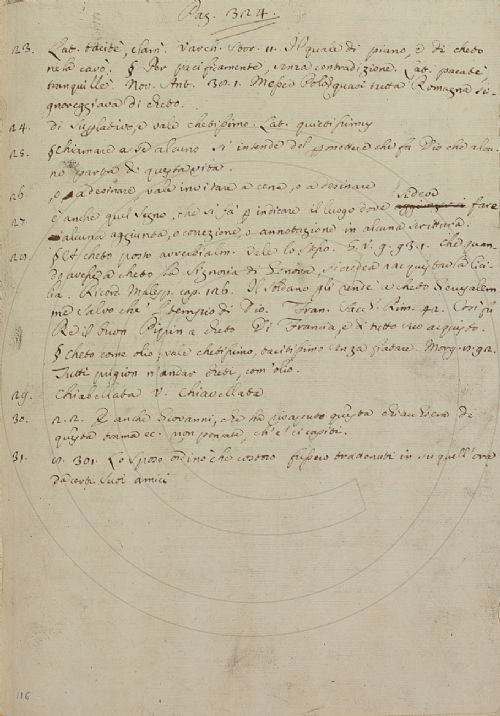 Pag. 324.
23. Lat. tacitè, clam. Varch. Stor. 11. Il quale di piano, e di cheto
ne lo cavò. § Per pacificamente, senza contradizione. Lat. pacatè,
tranquillè. Nov. Ant. 30. 1. Messer Polo quasi tutta Romagna si-
gnoreggiava di cheto.
24. di Suplativo, e vale chetissimo. Lat. quietissimus
25. § Chiamare a se alcuno si intende del che fa Dio che alcu-
no parta di questa vita.
26. o a desinare vale invitare a cena, o a desinare
27. è anche quel segno, che si fa p indicare il luogo dove si deve fare
alcuna aggiunta, o correzione, o annotazione in alcuna scrittura.
29. § A cheto posto avverbialm. vale lo stesso. G. V. 9. 93. 1. Che quan-
do avesse a cheto la Signoria di Genova, si credea racquistare la Cici-
lia. Ricord. Malesp. cap. 186. Il Soldano gli rende a cheto Gerusalem-
me salvo che il tempio di Dio. Fran. Sacch. Rim. 42. Così fu
Re il buon Pipin a cheto Di Francia, e di tutto suo acquisto.
§ Cheto come olio, vale chetissimo, tacitissimo senza fiatare. Morg. 19. 92.
Tutti prigion n'andar cheti, com'olio.
29. Chiabellata v. Chiavellata
30. 2. 2. E anche Giovanni, che ha questa chiacchiera di
questa trama ec. non pensate, ch'e' ci capiti.
31. N. 301. Lo sposo ordinò che costoro fussero trattenuti in su quell'ora
da certi suoi amici
116